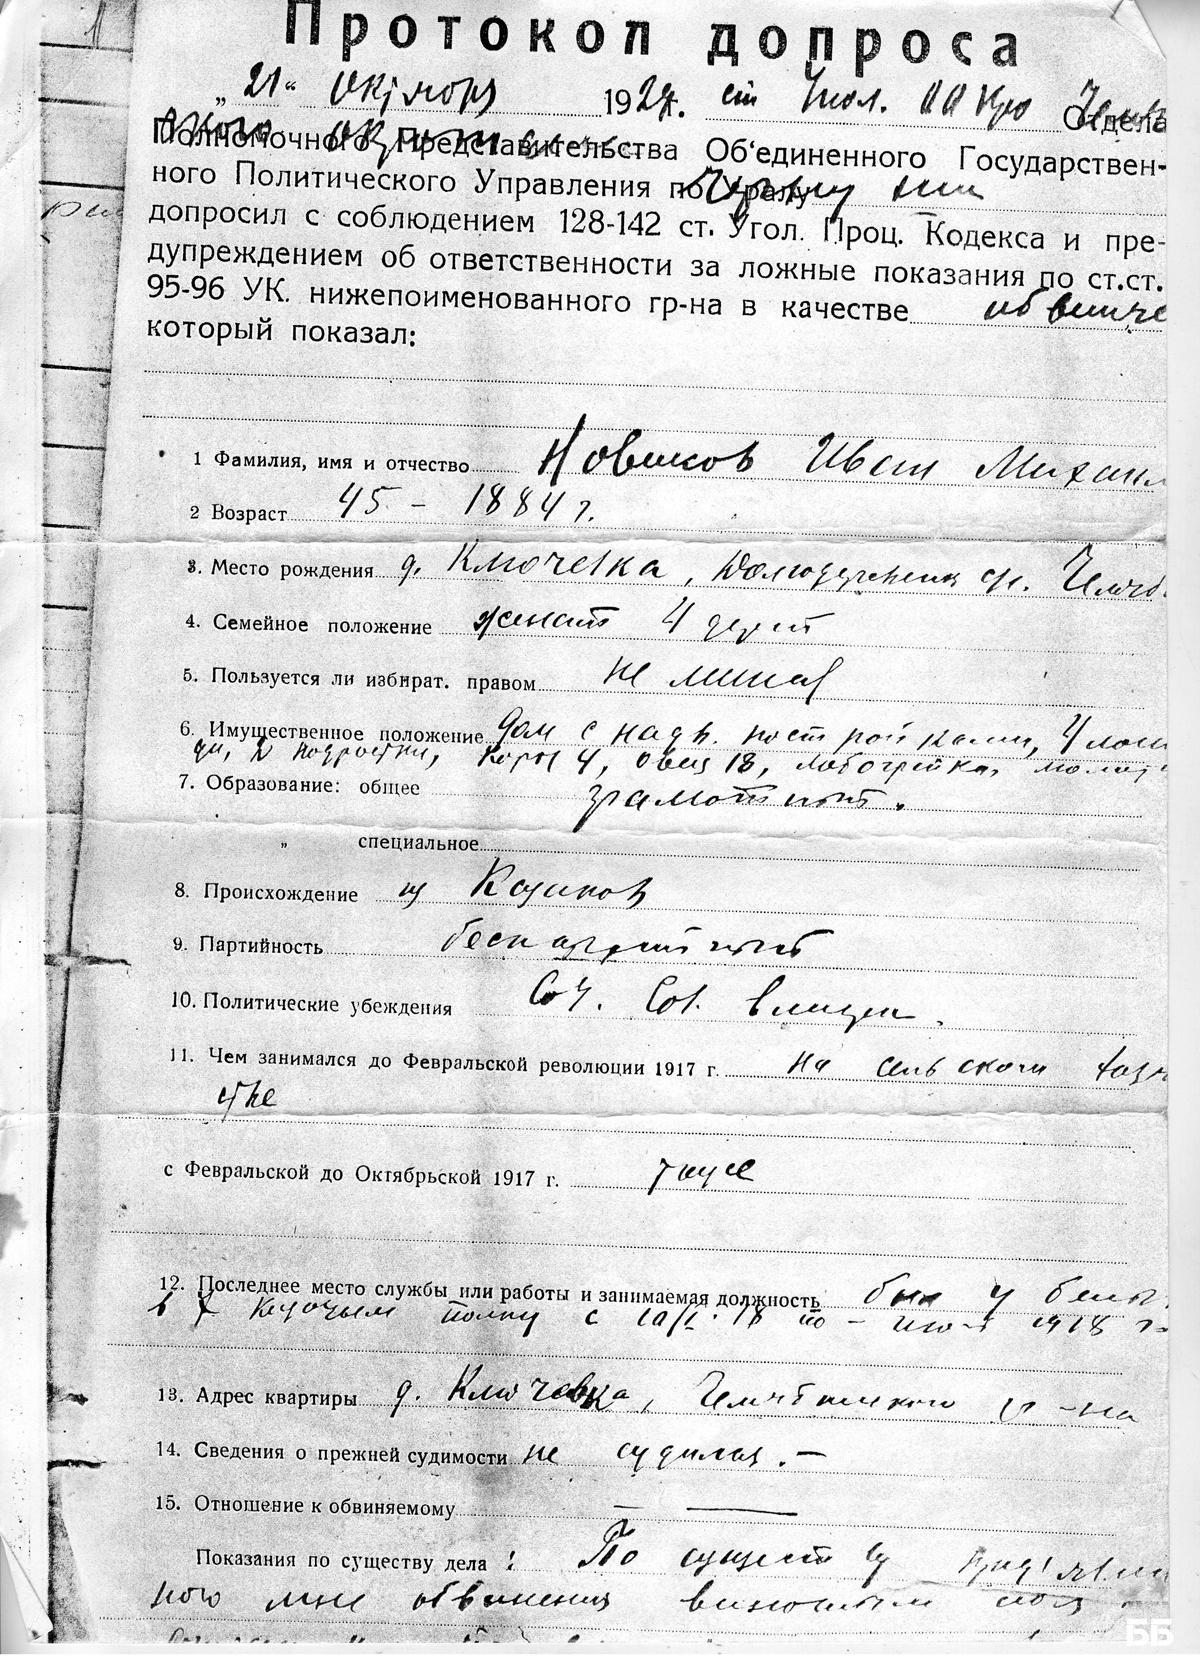 Протокол допроса
„21“ октября 1929г. ст Упол.
Отдела
Полномочного Представительства Об'единенного Государствен-
ного Политического Управления по Уралу
допросил с соблюдением 128-142 ст. Угол. Проц. Кодекса и пре-
дупреждением об ответственности за ложные показания по ст.ст.
95-96 УК. нижепоименованного гр-на в качестве обвиняе
который показал:
1 Фамилия, имя и отчество Новиков Иван Михаил
2 Возраст 45 - 1884 г.
3. Место рождения д. Ключевка,
4. Семейное положение женат 4 детей
5. Пользуется ли избират. правом не лишав
6. Имущественное положение Дом с надв. постройками, 4 лоша
ди, 2 подростки, Коров 4, овец 18, лобогрейка,
7. Образование: общее грамотный.
„ специальное
8. Происхождение из Казаков
9. Партийность беспартийный
10. Политические убеждения Соч. Сов. власти.
11. Чем занимался до Февральской революции 1917 г. на сельском хозя
стве
с Февральской до Октябрьской 1917 г. тоже
12. Последнее место службы или работы и занимаемая должность был у белых
в казачьем полку с по - 1918 г.
13. Адрес квартиры д. Ключевка, Челябинского р-на
14. Сведения о прежней судимости не судился. —
15. Отношение к обвиняемому — —
Показания по существу дела: По существу предъявлен
ного мне обвинения виновным себя
ББ